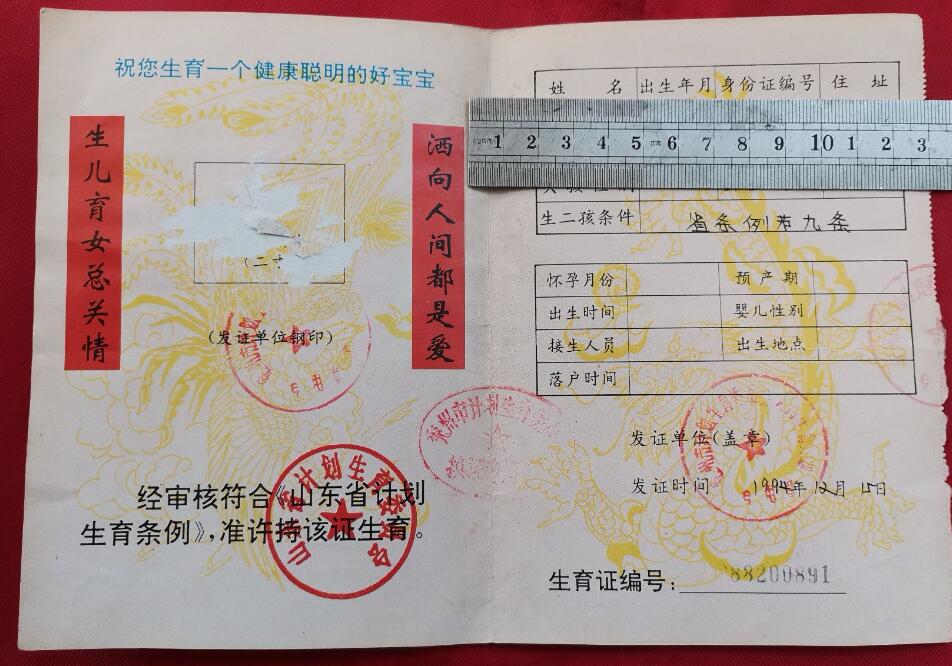 祝您生育一个健康聪明的好宝宝
生儿育女总关情
洒向人间都是爱
(二寸
(发证单位钢印)
经审核符合《山东省计划
生育条例》,准许持该证生育。
山东省计划生育委员会
兖州市计划生育
姓 名 出生年月 身份证编号 住 址
1 2 3 4 5 6 7 8 9 10 1 2 3
生二孩条件 省条例第九条
怀孕月份 预产期
出生时间 婴儿性别
接生人员 出生地点
落户时间
发证单位(盖章)
发证时间 1994年12月15日
生育证编号: 88200891